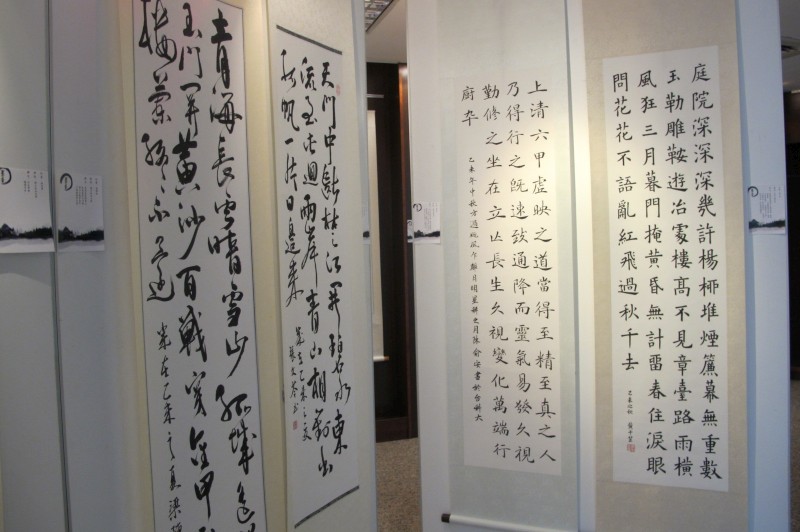 庭院深深深幾許楊柳堆煙簾幕無重數
玉勒雕鞍遊冶處樓高不見章臺路雨橫
風狂三月暮門掩黃昏無計留春住淚眼
問花花不語亂紅飛過秋千去
上清六甲虛映之道當得至精至真之人
乃得行之既速致通降而靈氣易發久視
勤修之坐在立亾長生久視變化萬端行
廚卒
乙未年中秋方過
天門中斷楚江開碧水東
流至此迴兩岸青山相對出
孤帆一片日邊來
歲在乙未之夏
青海長雲暗雪山孤城遙
玉門關黃沙百戰穿金甲
樓蘭終不還
歲在乙未之夏梁